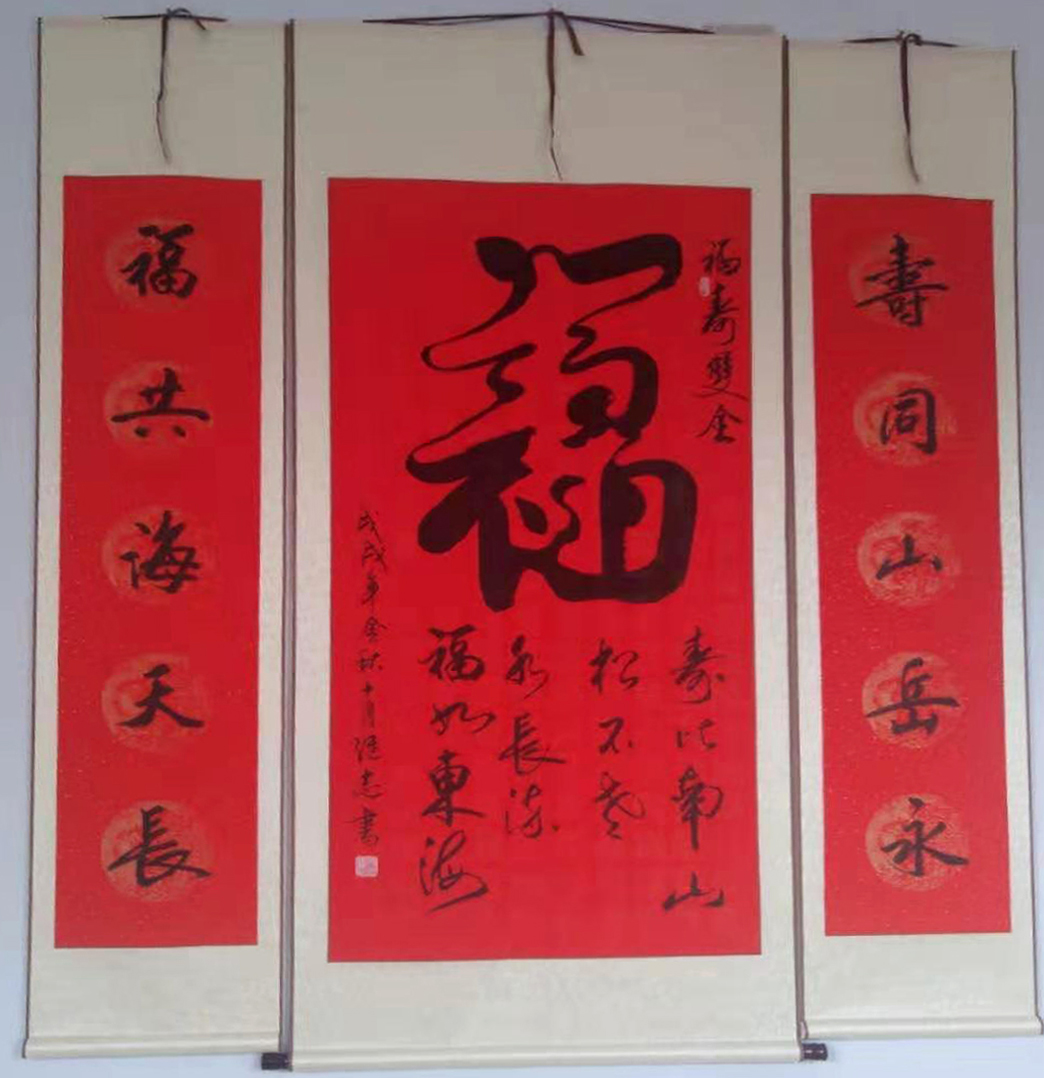 壽同山岳永
福壽雙全
福
壽比南山
松不老
水長流
福如東海
戊戌年金秋十月 志書
福共海天長